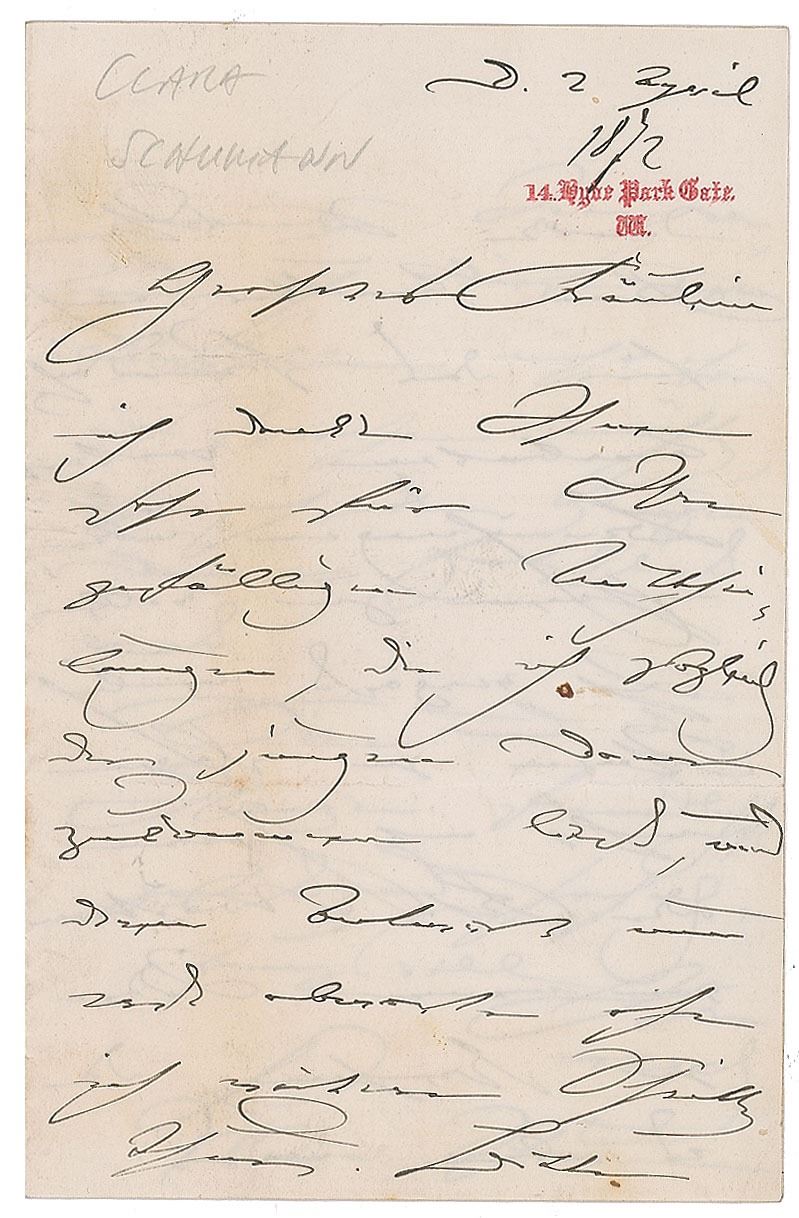 CLARA
SCHUMANN
D. 2 April
1872
14. Hyde Park Gate.
W.
Geehrtes Fräulein
ich danke Ihnen
sehr für Ihre
gefälligen Mitthei-
lungen, die ich sogleich
der jungen Dame
zukommen ließ, und
deren Antwort nun
erst abwarten ehe
ich weitere
Ihnen. Bitte